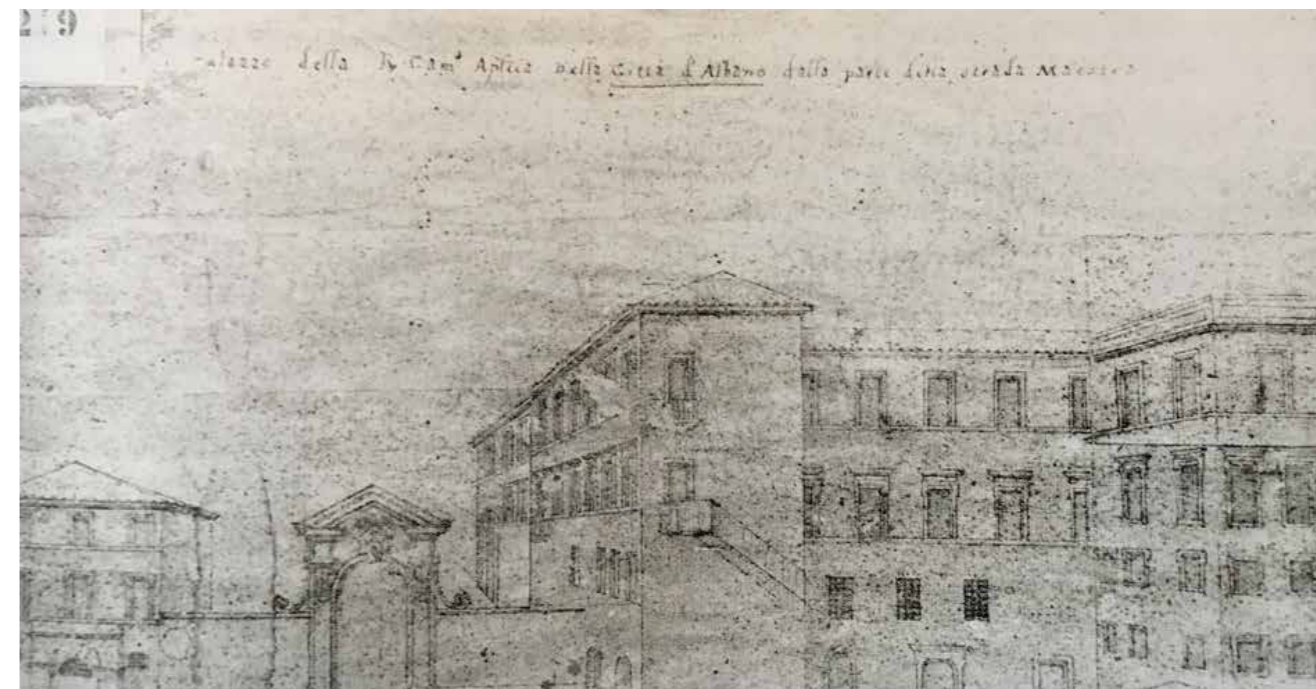 219
alazzo della R. Cam.ª Aplica nella Città d'Albano dalla parte della strada Maestra